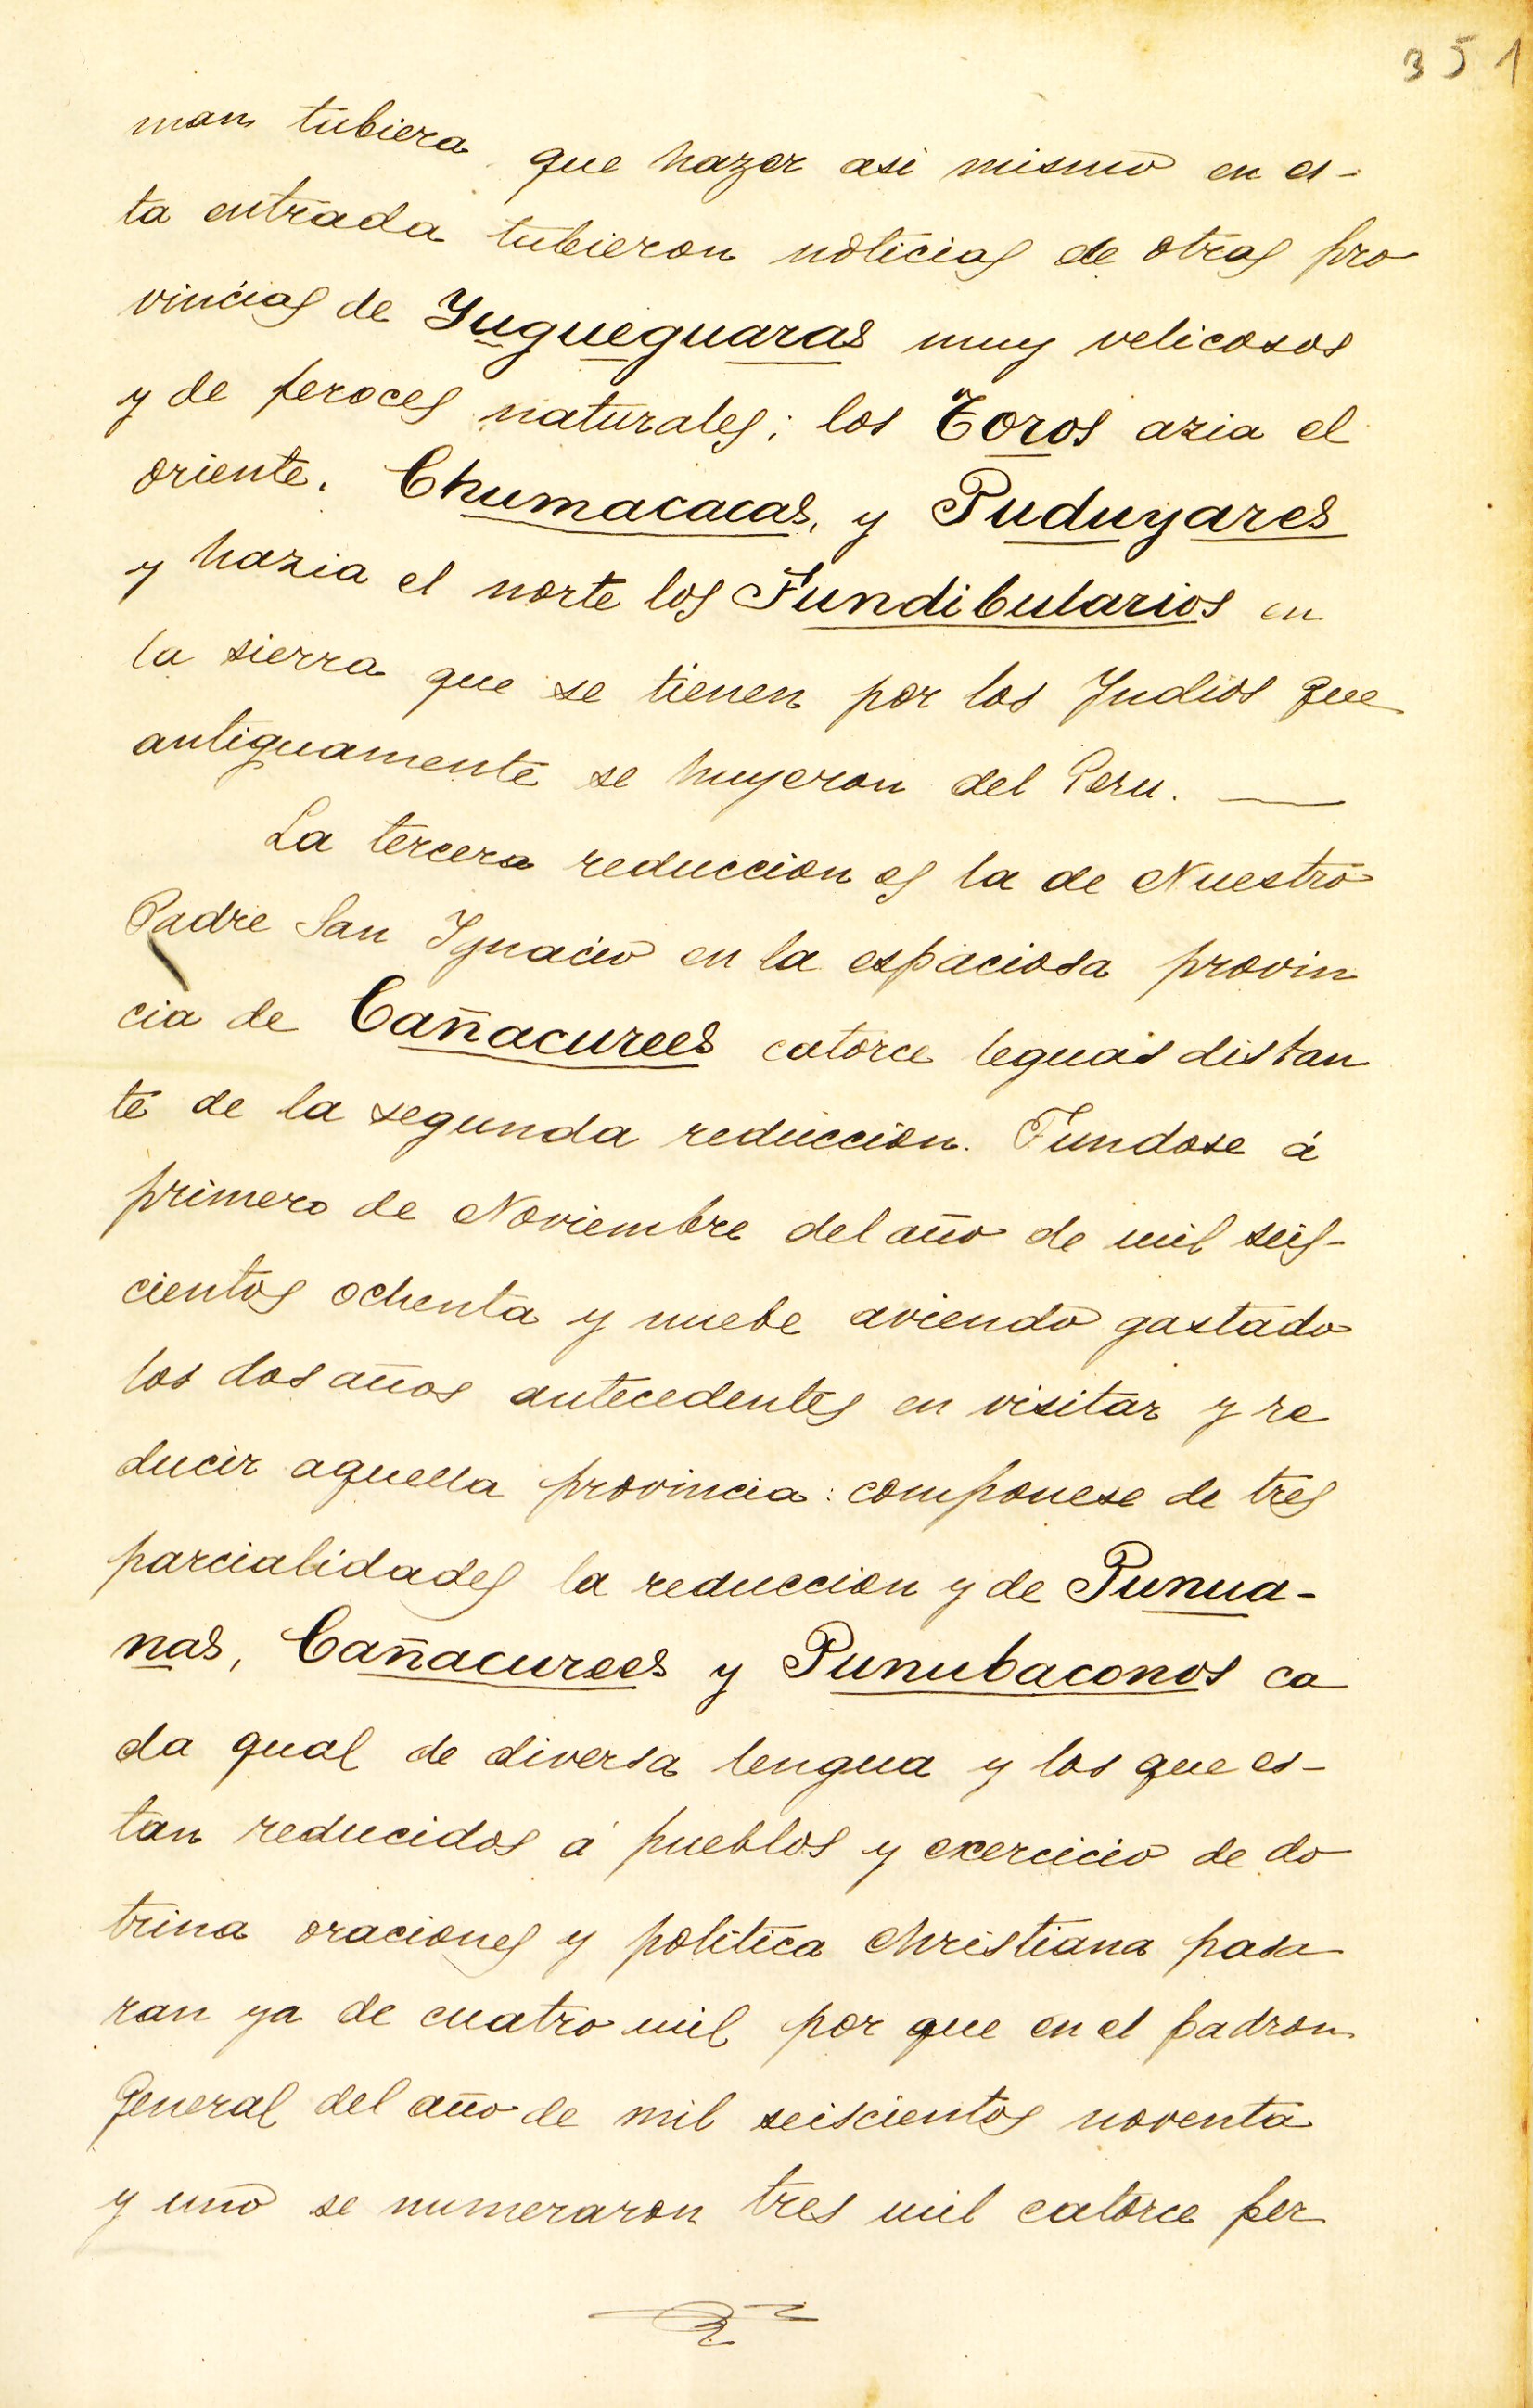 351
man tubiera que hazer asi mismo en es-
ta entrada tubieron noticias de otras pro
vincias de Yugueguaras muy velicosos
y de feroces naturales; los Toros azia el
oriente. Chumacacas, y Puduyares
y hazia el norte los Fundibularios en
la sierra que se tienen por los Yndios que
antiguamente se huyeron del Peru. —
La tercera reduccion es la de Nuestro
Padre San Ygnacio en la espaciosa provin
cia de Cañacurees catorce leguas distan
te de la segunda reduccion. Fundose á
primero de Noviembre del año de mil seis-
cientos ochenta y nuebe aviendo gastado
los dos años antecedentes en visitar y re
ducir aquella provincia: componese de tres
parcialidades la reduccion y de Punua-
nas, Cañacurees y Punubaconos ca
da qual de diversa lengua y los que es-
tan reducidos á pueblos y exercicio de do
trina oraciones y politica christiana pasa
ran ya de cuatro mil por que en el padron
general del año de mil seiscientos noventa
y uno se numeraron tres mil catorce per